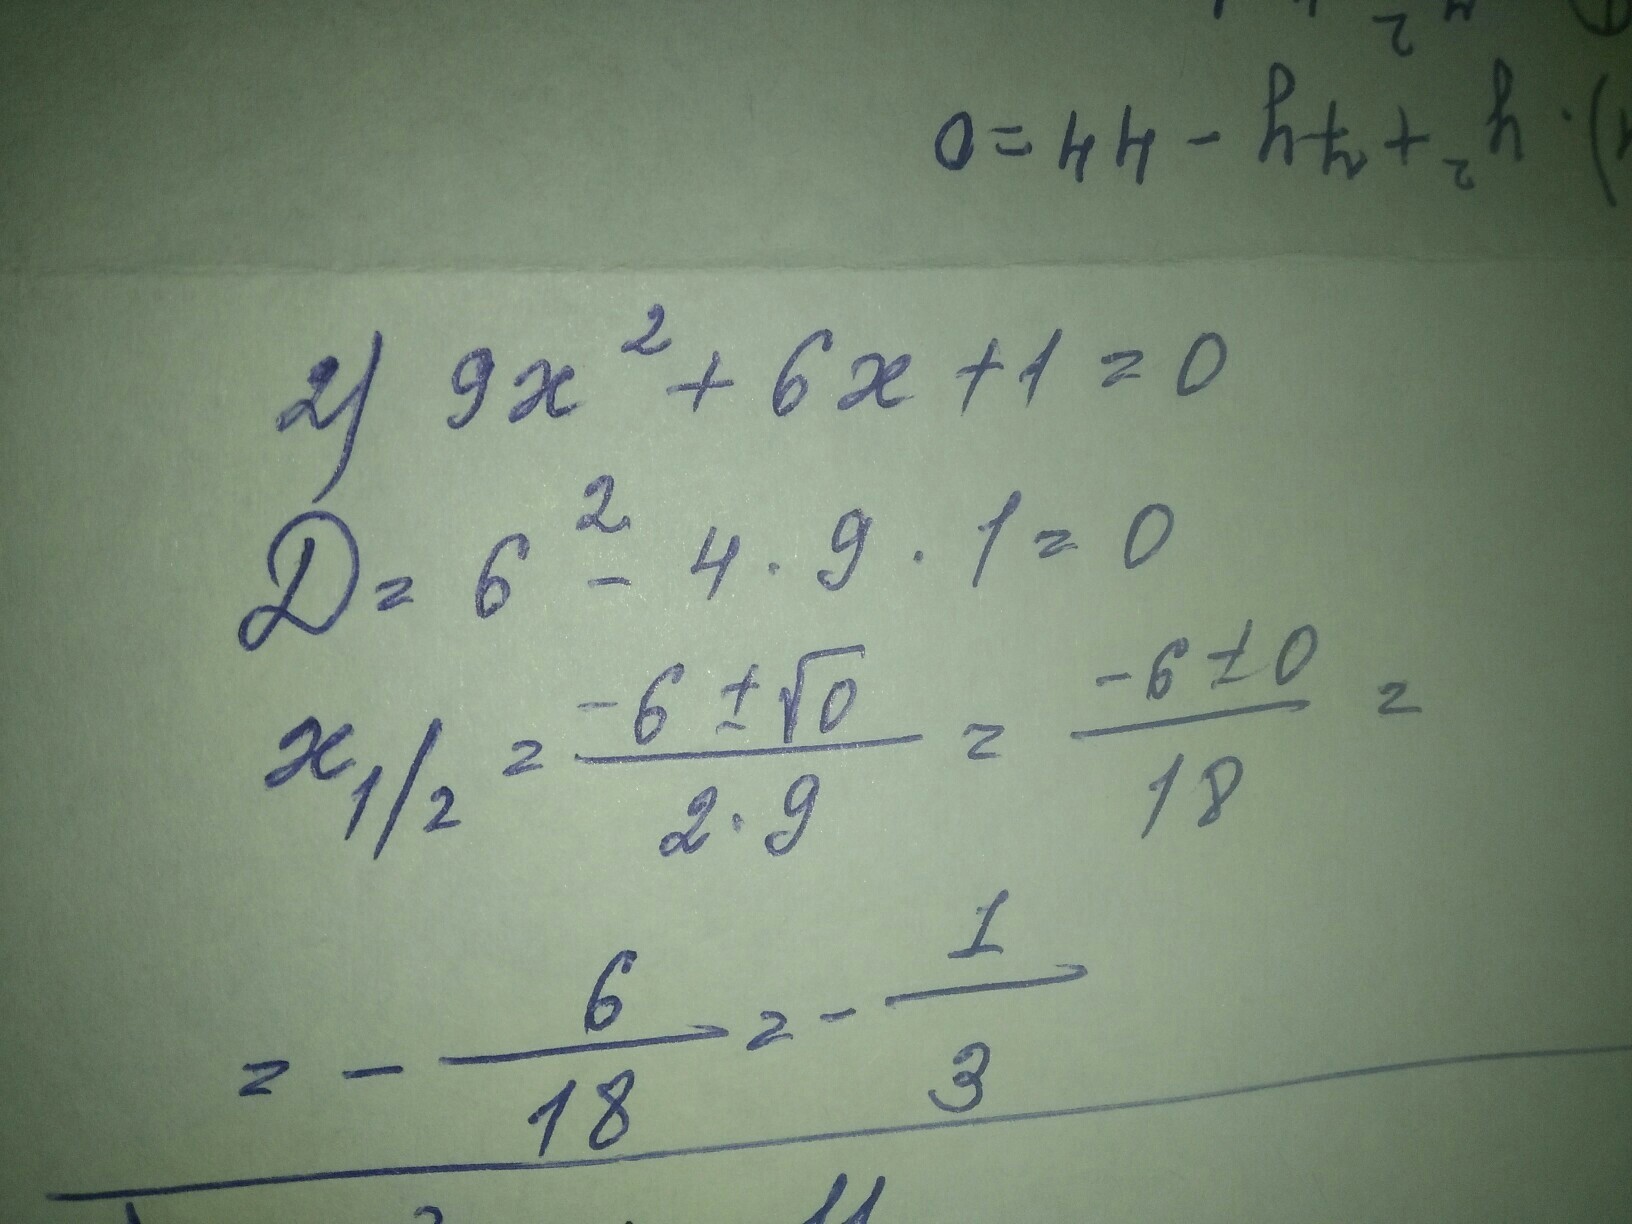 1). y² + 7y - 44 = 0
2) 9x² + 6x + 1 = 0
D = 6² - 4 · 9 · 1 = 0
x₁/₂ = (-6 ± √0)/(2 · 9) = (-6 ± 0)/18 =
= - 6/18 = - 1/3